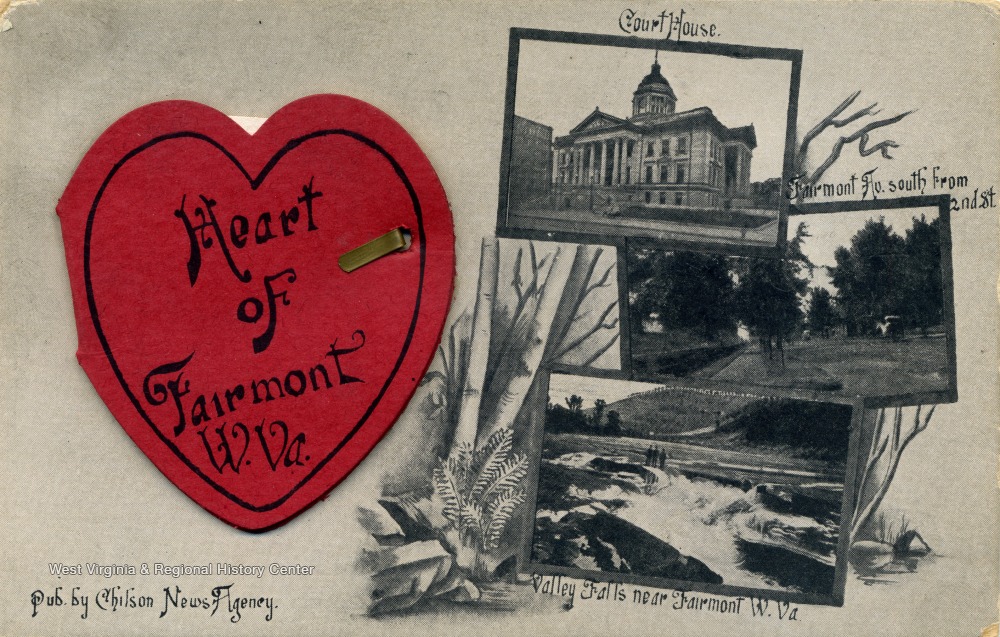 Court House.
Heart
of
Fairmont
W. Va.
Fairmont Av. south from
2nd St
Valley Falls near Fairmont W. Va.
West Virginia & Regional History Center
Pub. by Chilson News Agency.